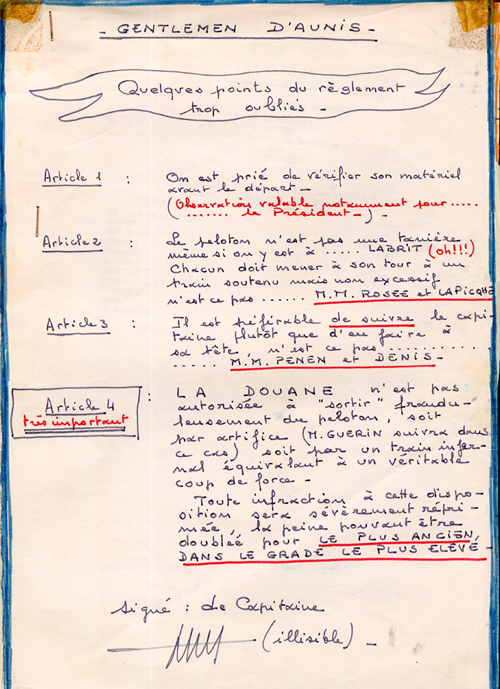 - GENTLEMEN D'AUNIS -
Quelques points du règlement
trop oubliés -
Article 1 : On est prié de vérifier son matériel
avant le départ -
(Observation valable notamment pour .....
....... le Président -) -
Article 2 : Le peloton n'est pas une tanière
même si on y est à ..... LABRIT (oh!!!)
Chacun doit mener à son tour à un
train soutenu mais non excessif
n'est ce pas ...... M.M. ROSEE et LAPICQUE
Article 3 : Il est préférable de suivre le capi-
taine plutôt que d'en faire à
sa tête, n'est ce pas ............
..... M.M. PENEN et DENIS -
Article 4 : LA DOUANE n'est pas
très important
autorisée à "sortir" fraudu-
leusement du peloton, soit
par artifice (M. GUERIN suivra dans
ce cas) soit par un train infer-
nal équivalant à un véritable
coup de force -
Toute infraction à cette dispo-
sition sera sévèrement répri-
mée, la peine pouvant être
doublée pour LE PLUS ANCIEN,
DANS LE GRADE LE PLUS ELEVÉ -
Signé : Le Capitaine
(illisible) -